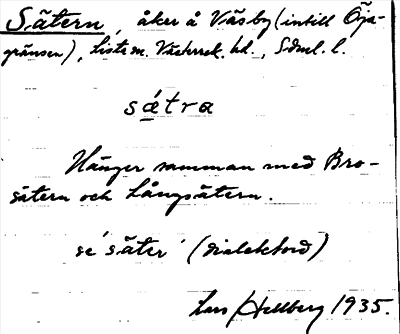 Sätern, åker å Väsby (intill Öja-
gränsen), Västerrek. hd., Sdml. l.
sä́tra
Hänger samman med Bro-
sätern och Långsätern.
se ´säter´ (dialektord)
Lars Hellberg 1935.